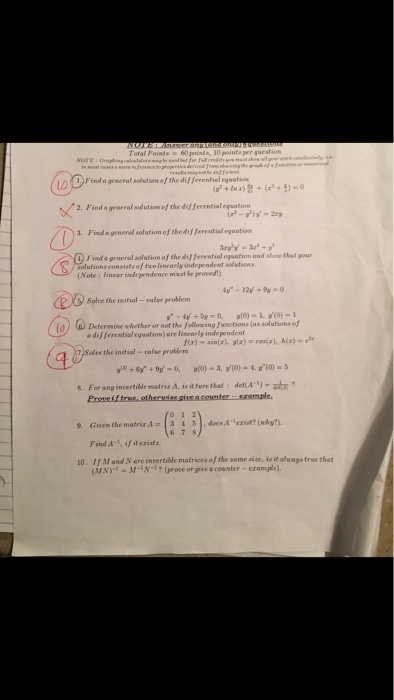 NOTE: Answer any (and only) questions
Total Points = 60 points, 10 points per question
10 1. Find a general solution of the differential equation
(y² + ln x) dy/dx + (x² + y/x) = 0
2. Find a general solution of the differential equation
(x² − y²)y' = 2xy
3. Find a general solution of the differential equation
3xy²y' = 3x⁴ + y³
8 4. Find a general solution of the differential equation and show that your
solutions consists of two linearly independent solutions.
(Note: linear independence must be proved)
4y'' − 12y' + 9y = 0
8 5. Solve the initial − value problem
y'' − 4y' + 5y = 0, y(0) = 1, y'(0) = 1
10 6. Determine whether or not the following functions (as solutions of
a differential equation) are linearly independent
f(x) = sin(x), g(x) = cos(x), h(x) =
9 7. Solve the initial − value problem
y⁽³⁾ + 6y'' + 9y' = 0, y(0) = 3, y'(0) = 4, y''(0) = 5
8. For any invertible matrix A, is it ture that : det(A⁻¹) = ?
Prove if true, otherwise give a counter − example.
9. Given the matrix A = (0 1 2
3 4 5
6 7 8), does A⁻¹ exist? (why?).
Find A⁻¹, if it exists.
10. If M and N are invertible matrices of the same size, is it always true that
(MN)⁻¹ = M⁻¹N⁻¹? (prove or give a counter − example).